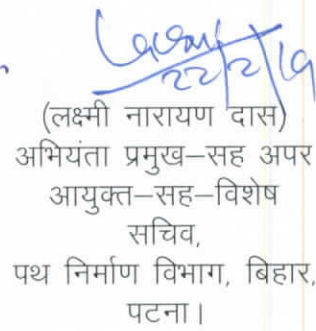 22/2/19
(लक्ष्मी नारायण दास)
अभियंता प्रमुख–सह अपर
आयुक्त–सह–विशेष
सचिव,
पथ निर्माण विभाग, बिहार,
पटना।